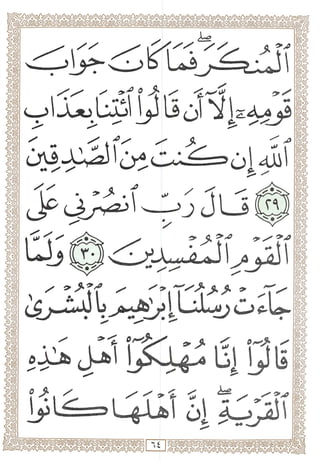 ٱلْمُنكَرَ ۖ فَمَا كَانَ جَوَابَ
قَوْمِهِۦٓ إِلَّآ أَن قَالُوا۟ ٱئْتِنَا بِعَذَابِ
ٱللَّهِ إِن كُنتَ مِنَ ٱلصَّـٰدِقِينَ
٢٩ قَالَ رَبِّ ٱنصُرْنِى عَلَى
ٱلْقَوْمِ ٱلْمُفْسِدِينَ ٣٠ وَلَمَّا
جَآءَتْ رُسُلُنَآ إِبْرَٰهِيمَ بِٱلْبُشْرَىٰ
قَالُوٓا۟ إِنَّا مُهْلِكُوٓا۟ أَهْلِ هَـٰذِهِ
ٱلْقَرْيَةِ ۖ إِنَّ أَهْلَهَا كَانُوا۟
٦٤